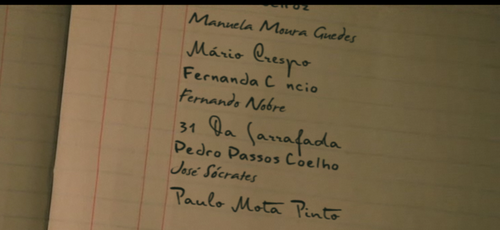 Manuela Moura Guedes
Mário Crespo
Fernanda C ncio
Fernando Nobre
31 Da Sarrafada
Pedro Passos Coelho
José Sócrates
Paulo Mota Pinto